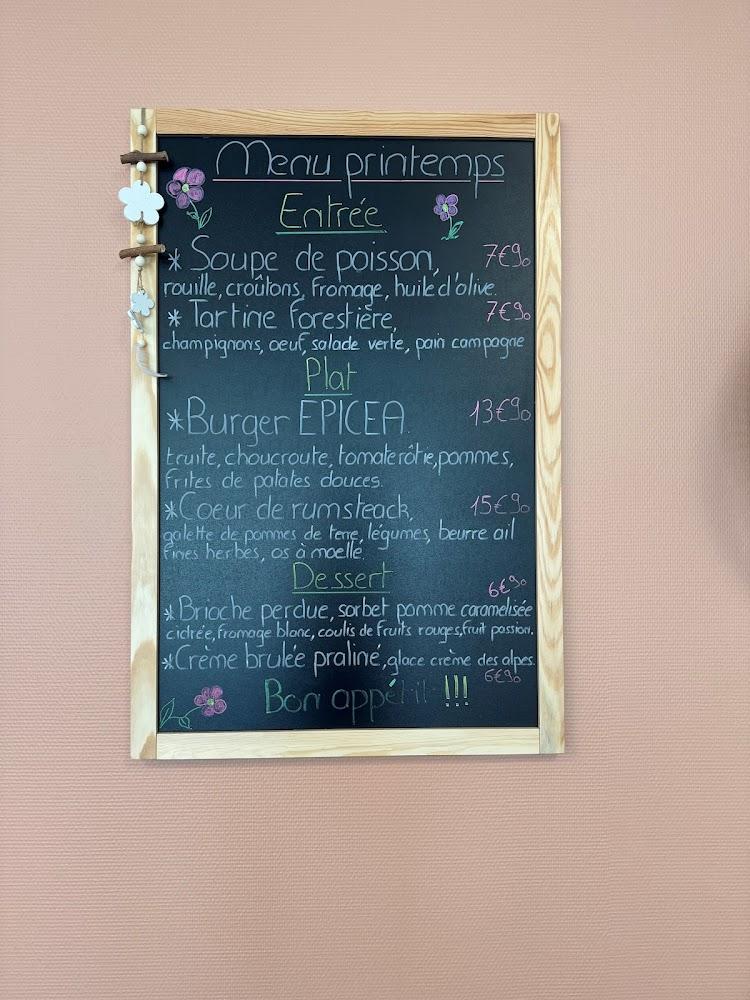 Menu printemps
Entrée
* Soupe de poisson, 7€90
rouille, croûtons, fromage, huile d'olive.
* Tartine forestière, 7€90
champignons, oeuf, salade verte, pain campagne
Plat
* Burger EPICEA. 13€90
truite, choucroute, tomate rôtie, pommes,
frites de patates douces.
* Coeur de rumsteack, 15€90
galette de pommes de terre, légumes, beurre ail
fines herbes, os à moelle.
Dessert
6€90
* Brioche perdue, sorbet pomme caramelisée
cidrée, fromage blanc, coulis de fruits rouges, fruit passion.
* Crème brulée praliné, glace crème des alpes.
6€90
Bon appétit !!!